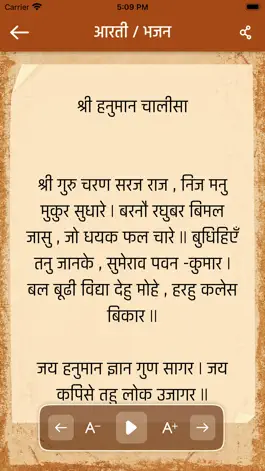 Carrier 5:09 PM
आरती / भजन
श्री हनुमान चालीसा
श्री गुरु चरण सरज राज , निज मनु
मुकुर सुधारे । बरनौ रघुबर बिमल
जासु , जो धयक फल चारे ॥ बुधिहिएँ
तनु जानके , सुमेराव पवन -कुमार ।
बल बूढी विद्या देहु मोहे , हरहु कलेस
बिकार ॥
जय हनुमान ज्ञान गुण सागर । जय
कपिसे तहु लोक उजागर ॥
A- A+